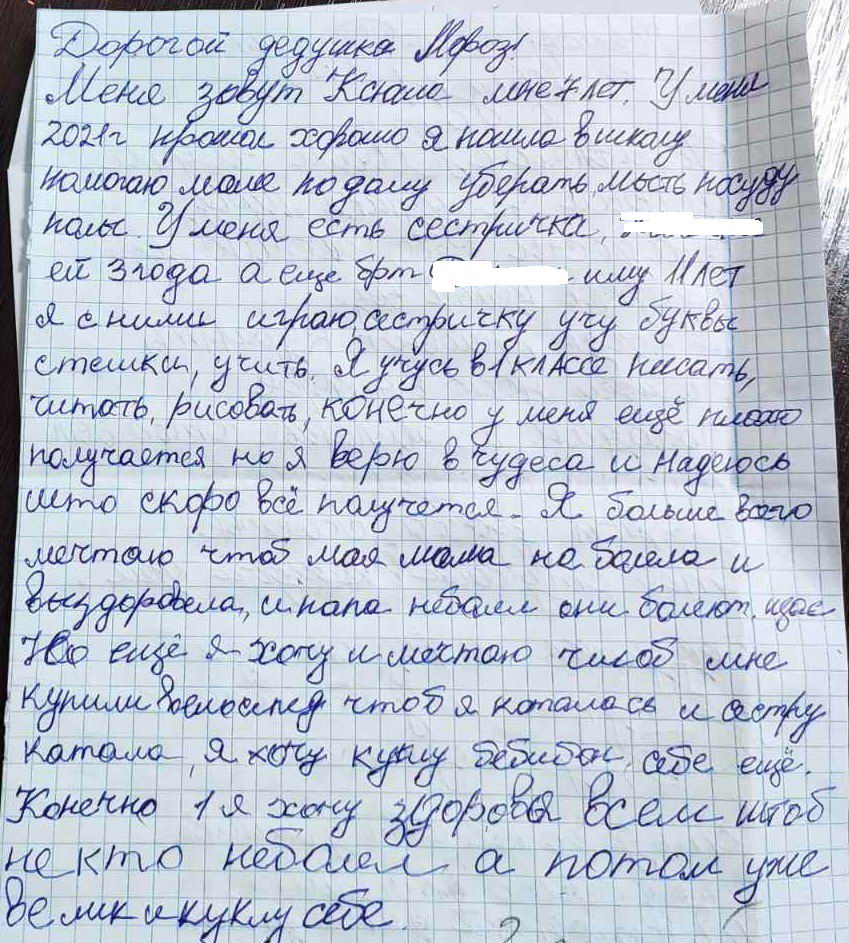 Дорогой дедушка Мороз!
Меня зовут Ксюша мне 7 лет. У меня
2021г прошол хорошо я пошла вшколу
помогаю маме подаму уберать, мыть посуду
полы. У меня есть сестричка,
ей 3 года а еще брт иму 11 лет
я с ними играю, сестричку учу буквы
стешки, учить. Я учусь в 1 классе писать,
читать, рисовать, конечно у меня ещё плохо
получается но я верю в чудеса и надеюсь
што скоро всё получется. Я больше всего
мечтаю чтоб мая мама на балела и
выздоровела, и папа небалел они балеют щас
Но ещё я хочу и мечтаю чтоб мне
купили велосипед чтоб я каталась и сестру
катала, я хочу куклу бебибон себе ещё.
Конечно 1 я хочу здоровья всем штоб
не кто небалел а потом уже
велик и куклу себе.